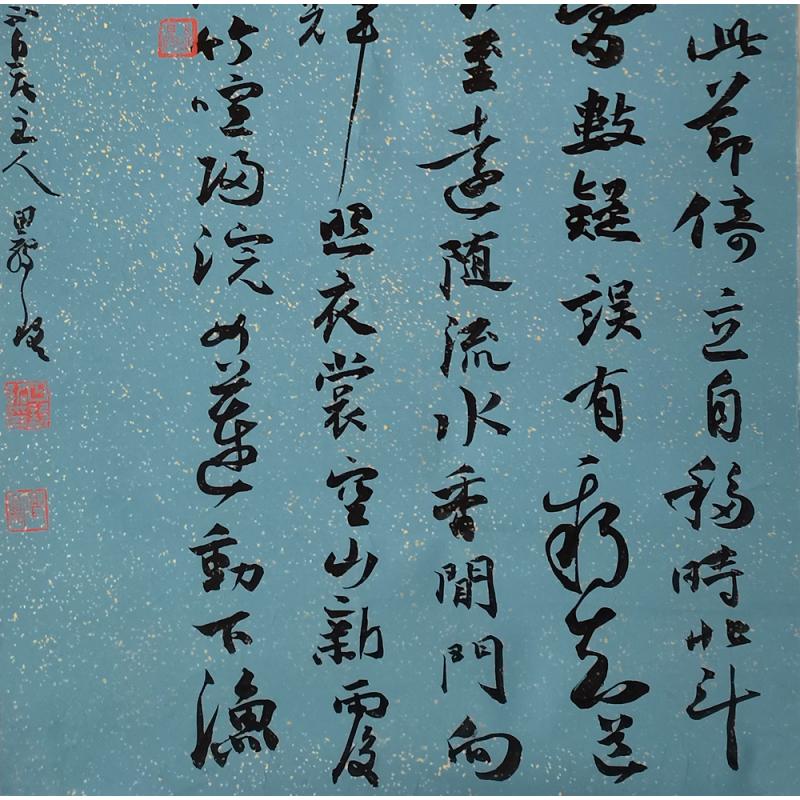 此節倚立自移時北斗
數疑誤有新知道
至遠隨流水香閒門向
輝照衣裳空山新雨後
竹喧歸浣女蓮動下漁
主人